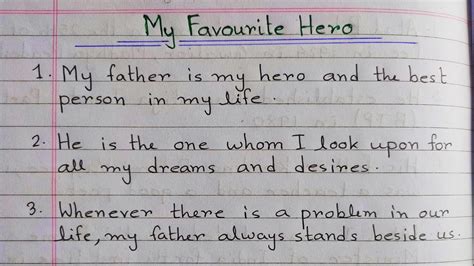 My Favourite Hero
1. My father is my hero and the best
person in my life.
2. He is the one whom I look upon for
all my dreams and desires.
3. Whenever there is a problem in our
life, my father always stands beside us.